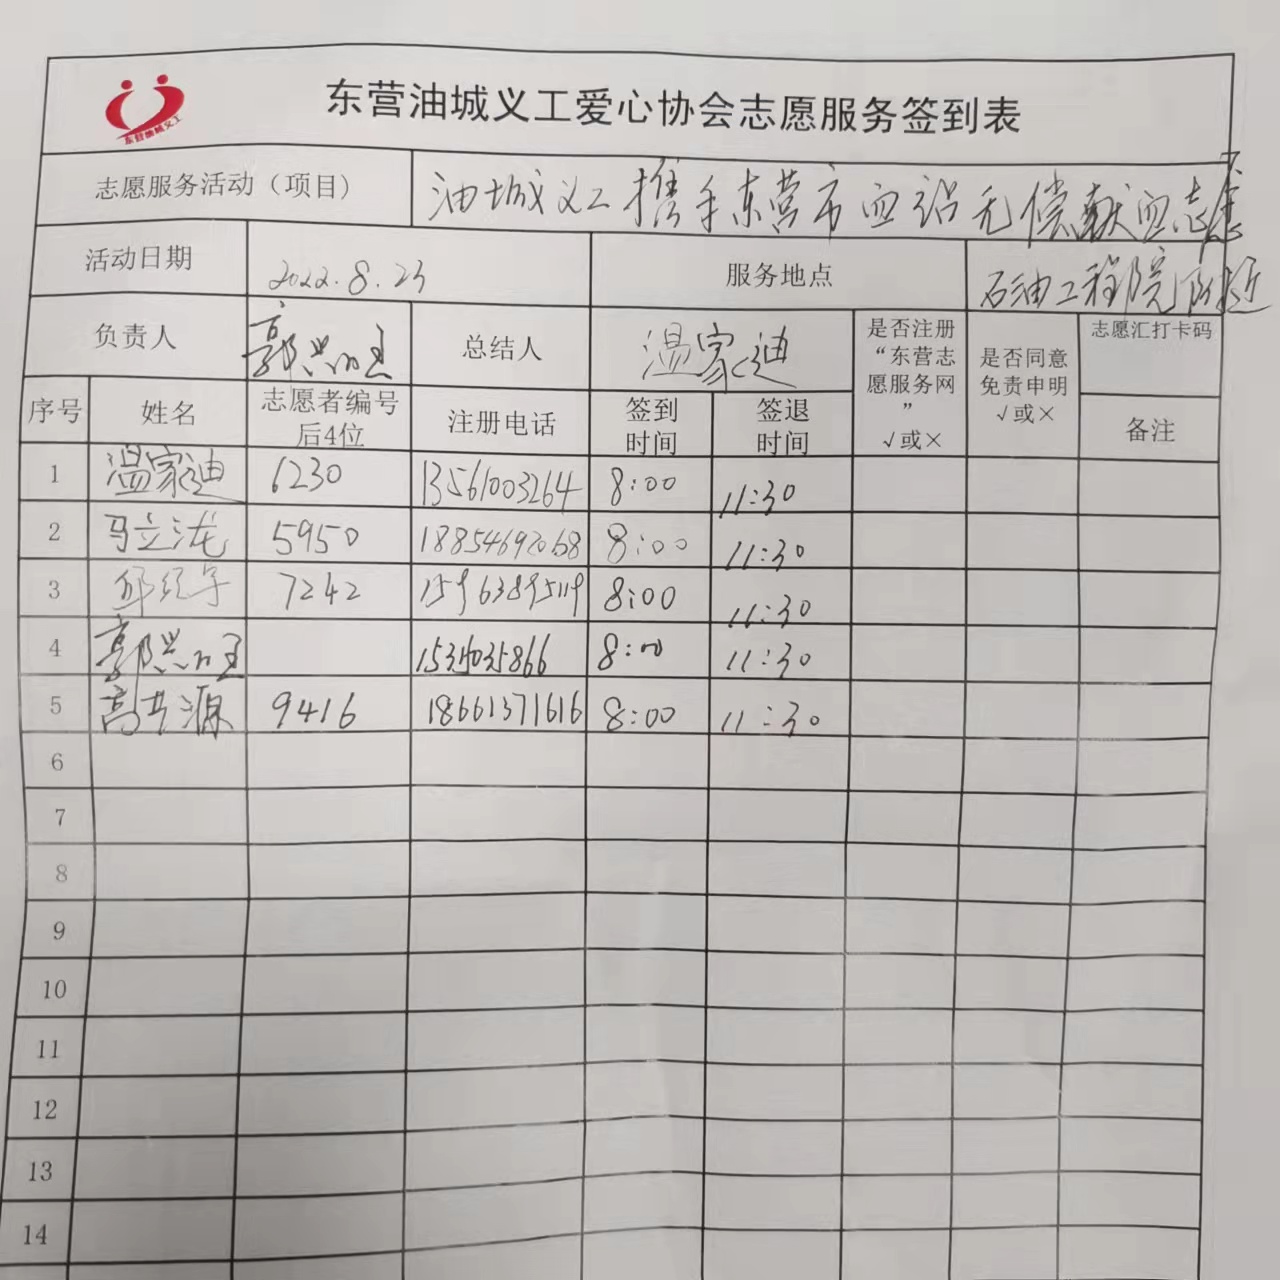 东营油城义工爱心协会志愿服务签到表
东营油城义工
志愿服务活动（项目） 油城义工携手东营市血站无偿献血志愿
活动日期 2022.8.23 服务地点 石油工程院附近
负责人 郭 总结人 温家迪 是否注册“东营志愿服务网”√或× 是否同意免责申明√或× 志愿汇打卡码
序号 姓名 志愿者编号后4位 注册电话 签到时间 签退时间 备注
1 温家迪 6230 13561003264 8:00 11:30
2 马立泷 5950 18854692068 8:00 11:30
3 邱 7242 15963895119 8:00 11:30
4 郭 8:00 11:30
5 高 源 9416 18661371616 8:00 11:30
6
7
8
9
10
11
12
13
14